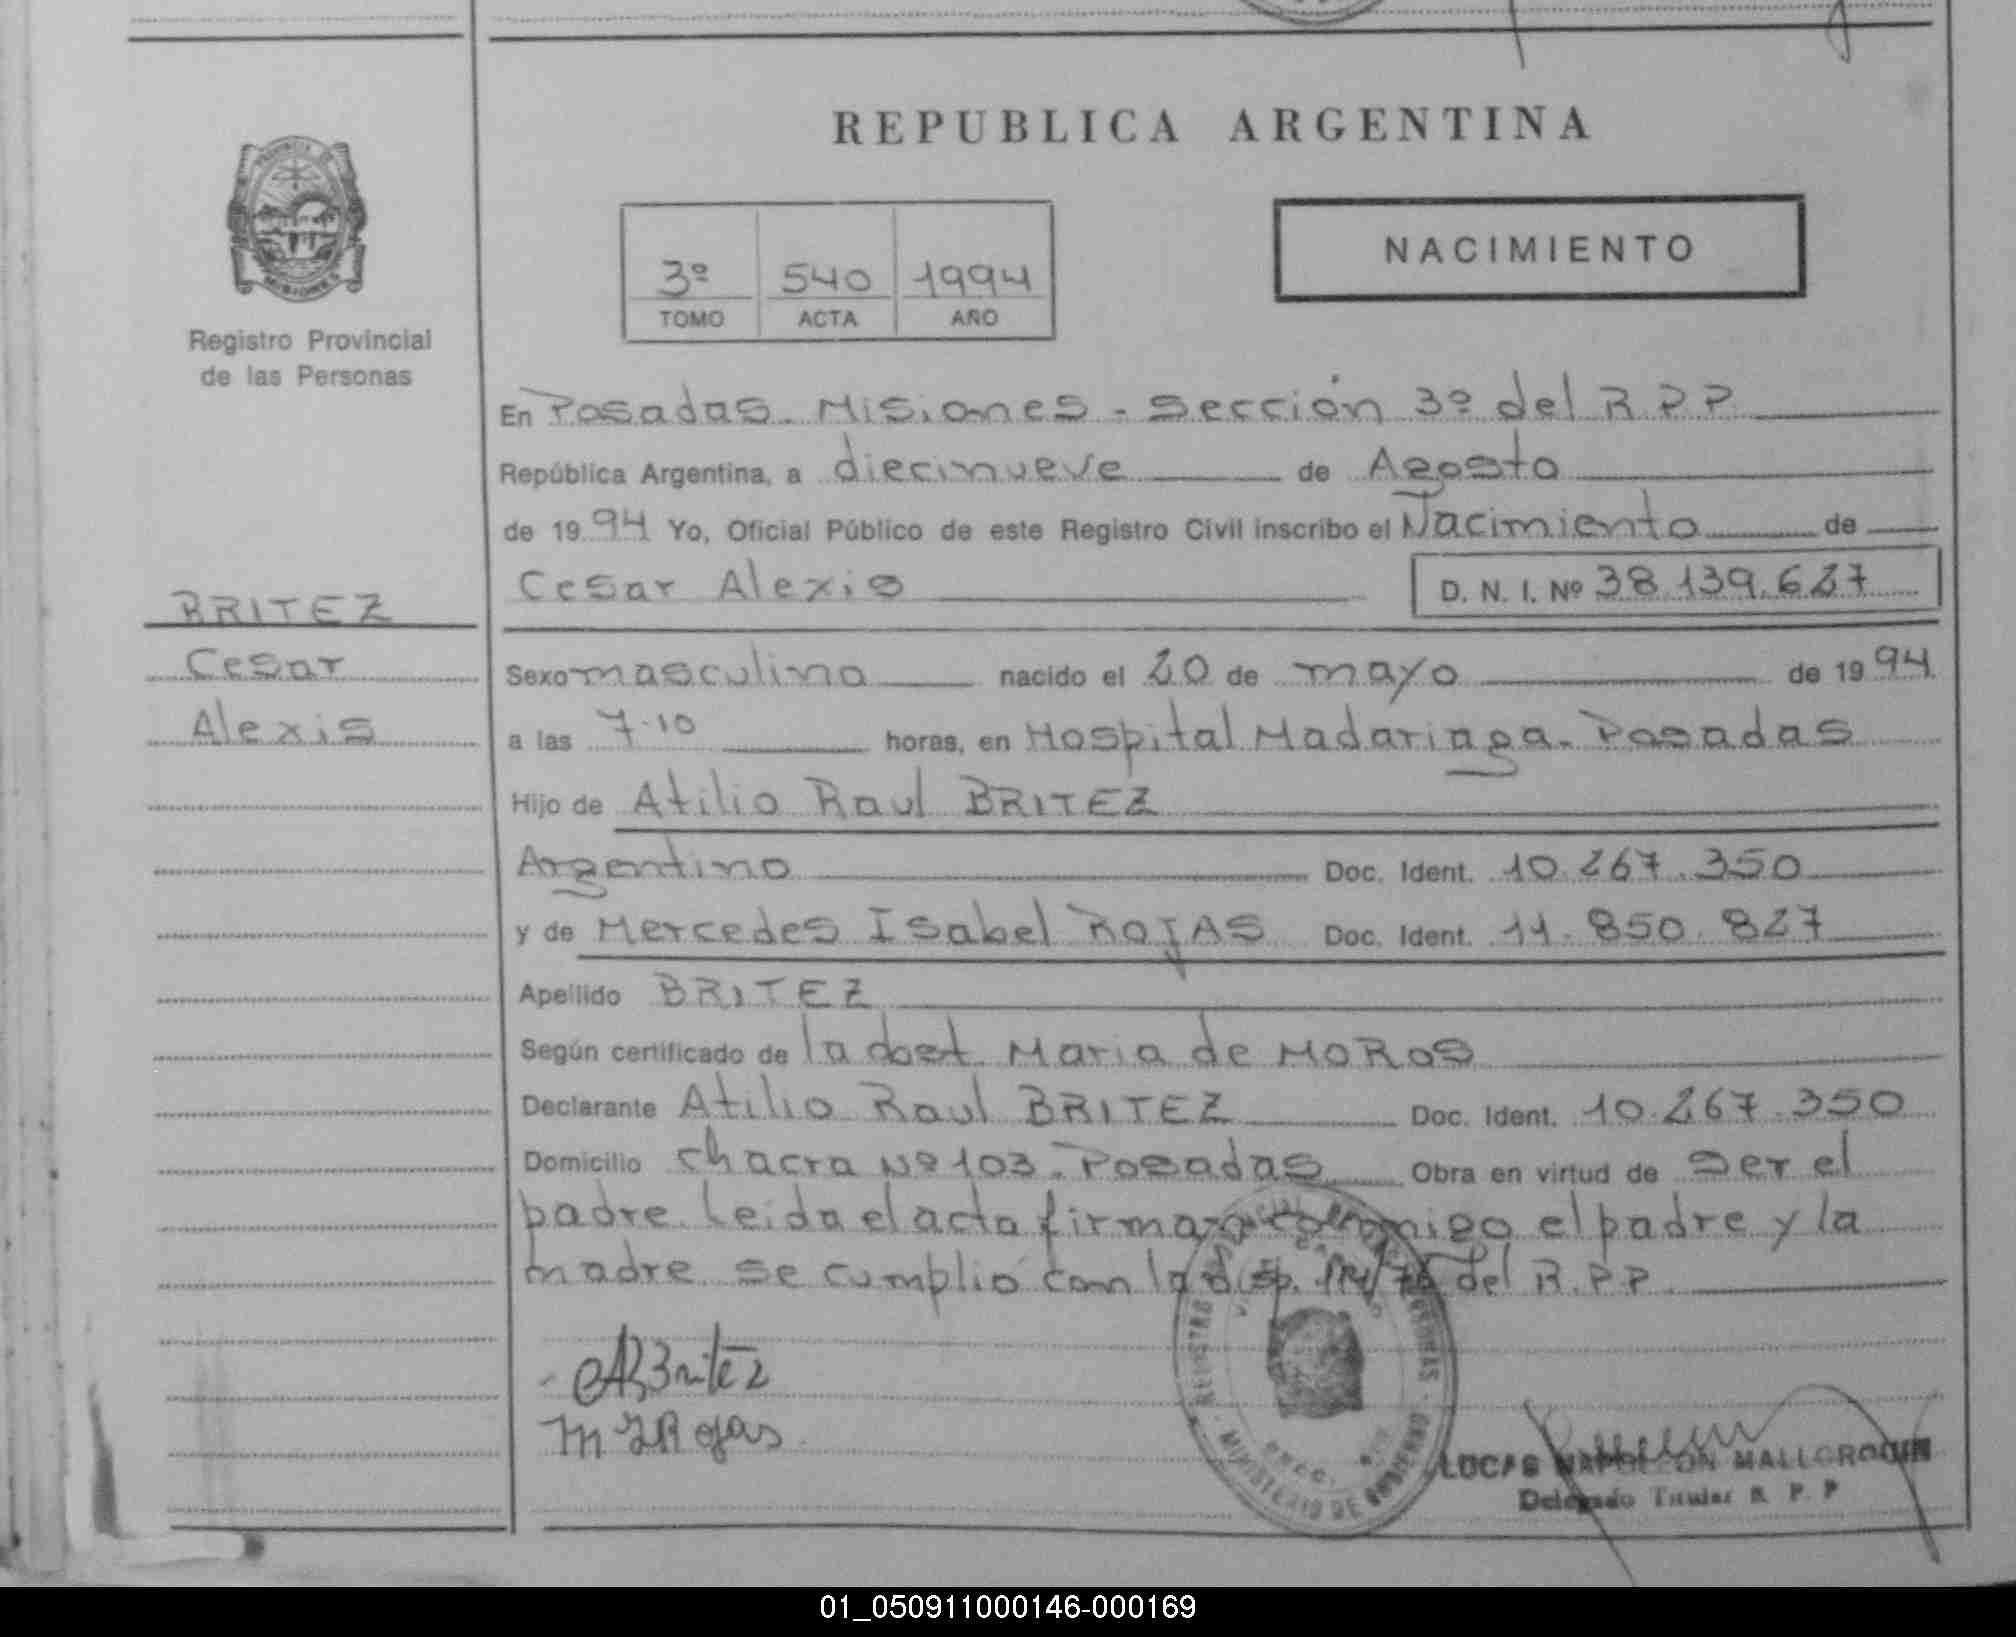 REPUBLICA ARGENTINA
NACIMIENTO
3º 540 1994
TOMO ACTA AÑO
Registro Provincial
de las Personas
En Posadas - Misiones - Sección 3º del R P P
República Argentina, a diecinueve de Agosto
de 1994 Yo, Oficial Público de este Registro Civil inscribo el Nacimiento de
Cesar Alexis D. N. I. Nº 38.139.627
BRITEZ
Cesar
Alexis
Sexo masculino nacido el 20 de mayo de 1994
a las 7.10 horas, en Hospital Madariaga - Posadas
Hijo de Atilio Raul BRITEZ
Argentino Doc. Ident. 10.267.350
y de Mercedes Isabel ROJAS Doc. Ident. 11.850.827
Apellido BRITEZ
Según certificado de la obst. Maria de MOROS
Declarante Atilio Raul BRITEZ Doc. Ident. 10.267.350
Domicilio Chacra Nº 103 - Posadas Obra en virtud de ser el
padre. Leida el acta firman conmigo el padre y la
madre se cumplió con la disp. del R.P.P.
ARBritez
MIRojas
MINISTERIO DE GOBIERNO
LUCAS NAPOLEON MALLORQUIN
Delegado Titular R. P. P
01_050911000146-000169